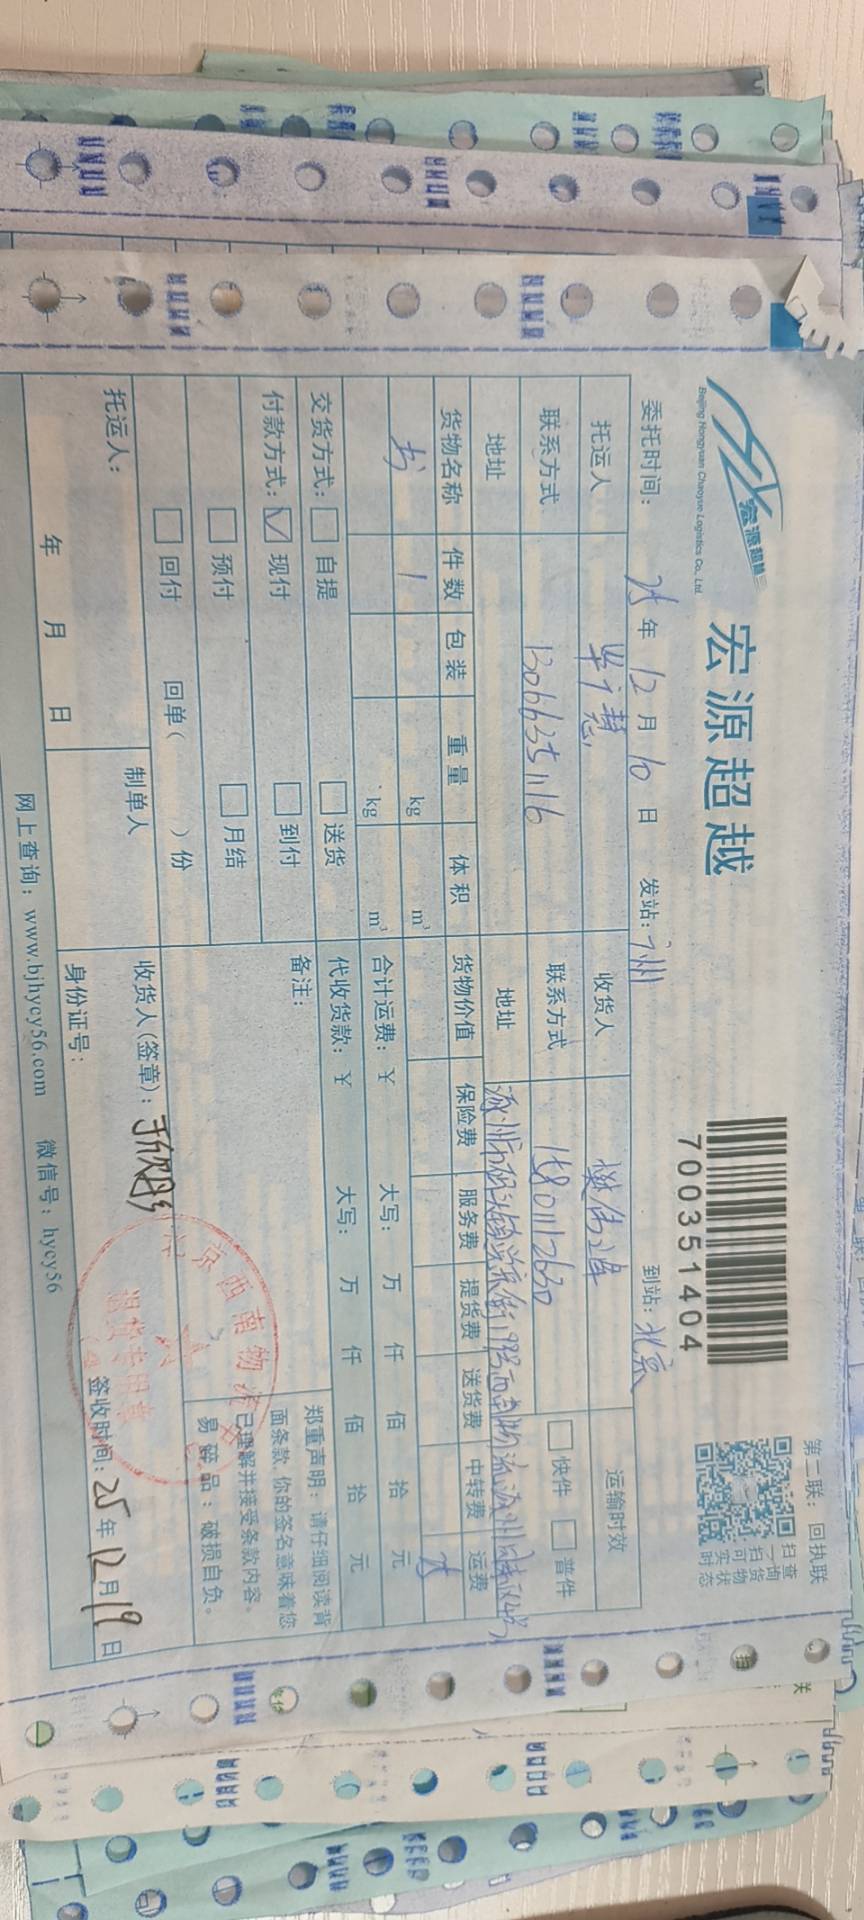 宏源超越
Beijing Hongyuan Chaoyue Logistics Co., Ltd.
宏源超越
7003514404
第二联：回执联
扫一扫
查询货物实时状态
委托时间：25年12月10日
发站：广州
到站：北京
托运人
收货人
运输时效
联系方式
13066351116
联系方式
15801112630
快件
普件
地址
地址
货物名称
件数
包装
重量
体积
货物价值
保险费
服务费
提货费
送货费
中转费
运费
书
1
kg
m³
kg
m³
合计运费：￥
大写：
万
仟
佰
拾
元
交货方式：
自提
送货
代收货款：￥
大写：
万
仟
佰
拾
元
付款方式：
现付
到付
预付
月结
回付
回单（ ）份
备注：
郑重声明：请仔细阅读背
面条款，你的签名意味着您
已理解并接受条款内容。
易碎品：破损自负。
托运人：
年 月 日
制单人
收货人(签章)：
身份证号：
签收时间：25年12月19日
网上查询：www.bjhycy56.com
微信号：hycy56